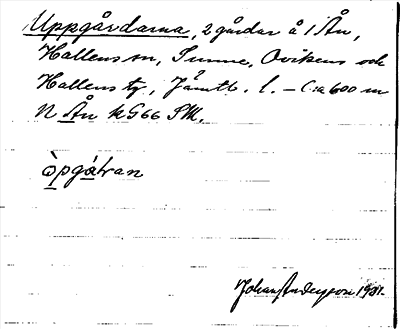 Uppgårdarna, 2 gårdar å 1 Ån,
Hallens sn, Sunne, Ovikens och
Hallens tg, Jämtl. l. – C:a 600 m
N Ån kG66 SM.
òpgáɫran
Johan Andersson 1931.